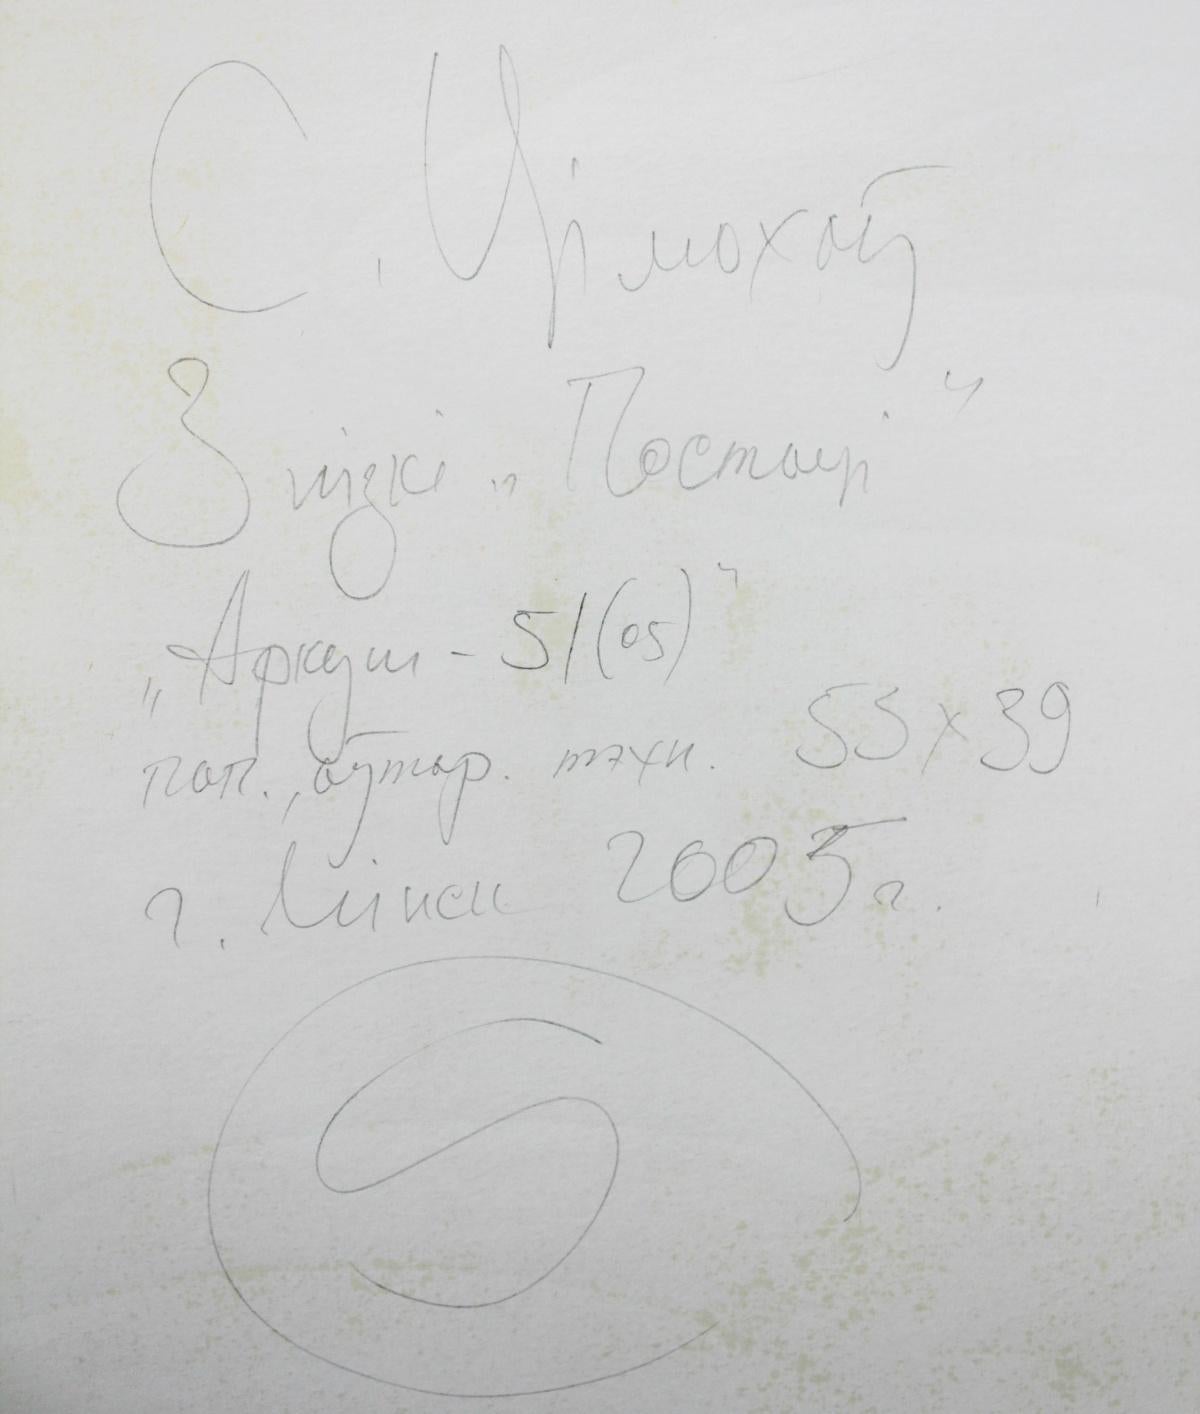 С. Цімохаў
З цыклі „Постаці"
„Аркуш - 51(05)"
пап., аўтар. тэхн. 53х39
г. Мінск 2005 г.